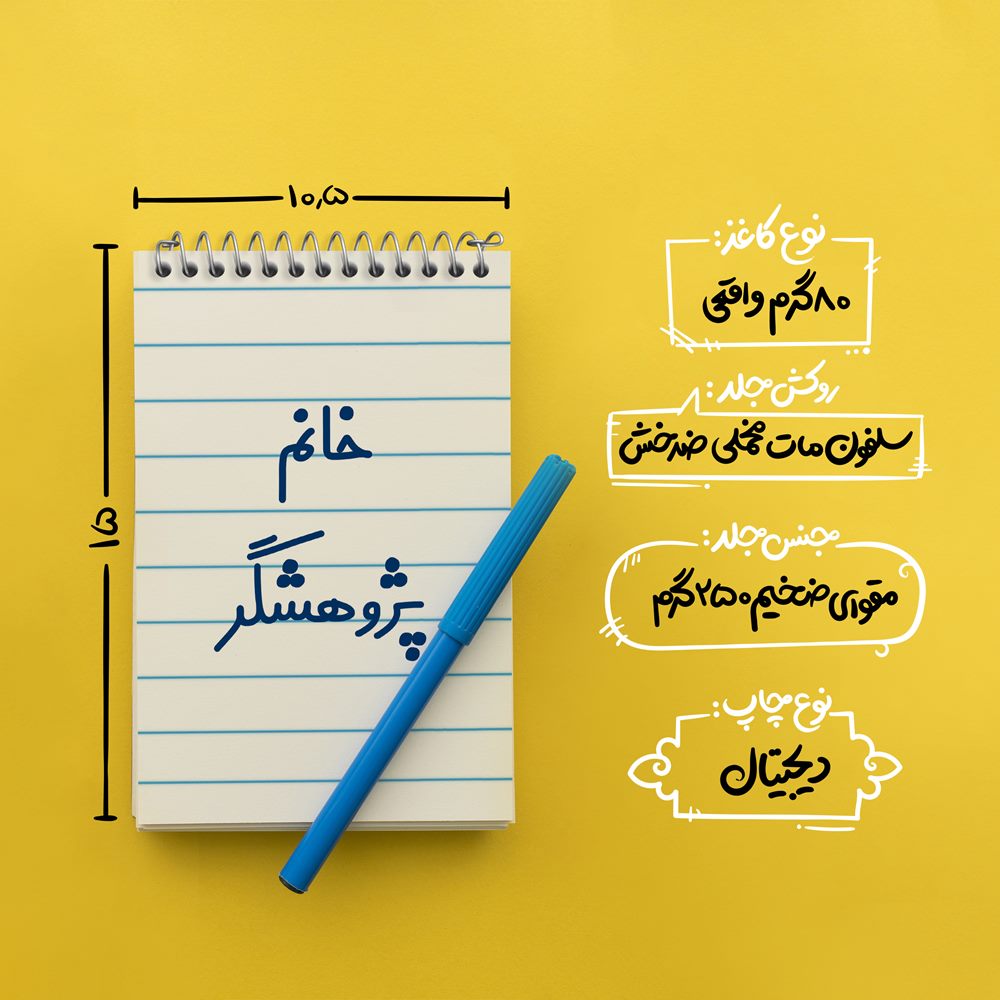 ۱۰٫۵
۱۵
خانم
پژوهشگر
نوع کاغذ:
۸۰گرم واقعی
روکش جلد:
سلفون مات مخملی ضدخش
جنس جلد:
مقوای ضخیم ۲۵۰گرم
نوع چاپ:
دیجیتال